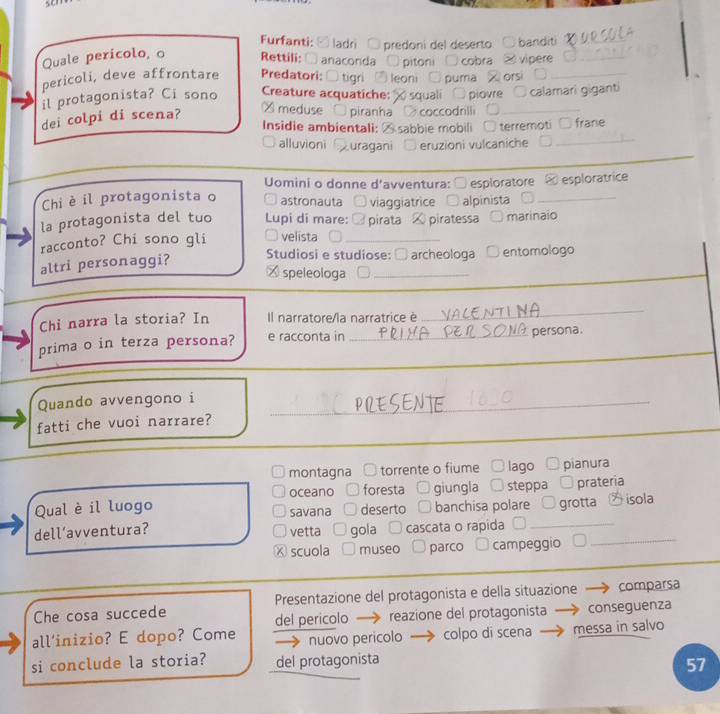 Quale pericolo, o
pericoli, deve affrontare
il protagonista? Ci sono
dei colpi di scena?
Furfanti: ☑ ladri ☐ predoni del deserto ☐ banditi ☒ URSULA
Rettili: ☐ anaconda ☐ pitoni ☐ cobra ☒ vipere ☐
Predatori: ☐ tigri ☑ leoni ☐ puma ☒ orsi ☐
Creature acquatiche: ☒ squali ☐ piovre ☐ calamari giganti
☒ meduse ☐ piranha ☑ coccodrilli ☐
Insidie ambientali: ☒ sabbie mobili ☐ terremoti ☐ frane
☐ alluvioni ☒ uragani ☐ eruzioni vulcaniche ☐
Chi è il protagonista o
la protagonista del tuo
racconto? Chi sono gli
altri personaggi?
Uomini o donne d'avventura: ☐ esploratore ☒ esploratrice
☐ astronauta ☐ viaggiatrice ☐ alpinista ☐
Lupi di mare: ☑ pirata ☒ piratessa ☐ marinaio
☐ velista ☐
Studiosi e studiose: ☐ archeologa ☐ entomologo
☒ speleologa ☐
Chi narra la storia? In
prima o in terza persona?
Il narratore/la narratrice è VALENTINA
e racconta in PRIMA PERSONA persona.
Quando avvengono i
fatti che vuoi narrare?
PRESENTE
Qual è il luogo
dell'avventura?
☐ montagna ☐ torrente o fiume ☐ lago ☐ pianura
☐ oceano ☐ foresta ☐ giungla ☐ steppa ☐ prateria
☐ savana ☐ deserto ☐ banchisa polare ☐ grotta ☒ isola
☐ vetta ☐ gola ☐ cascata o rapida ☐
☒ scuola ☐ museo ☐ parco ☐ campeggio ☐
Che cosa succede
all'inizio? E dopo? Come
si conclude la storia?
Presentazione del protagonista e della situazione → comparsa
del pericolo → reazione del protagonista → conseguenza
→ nuovo pericolo → colpo di scena → messa in salvo
del protagonista
57